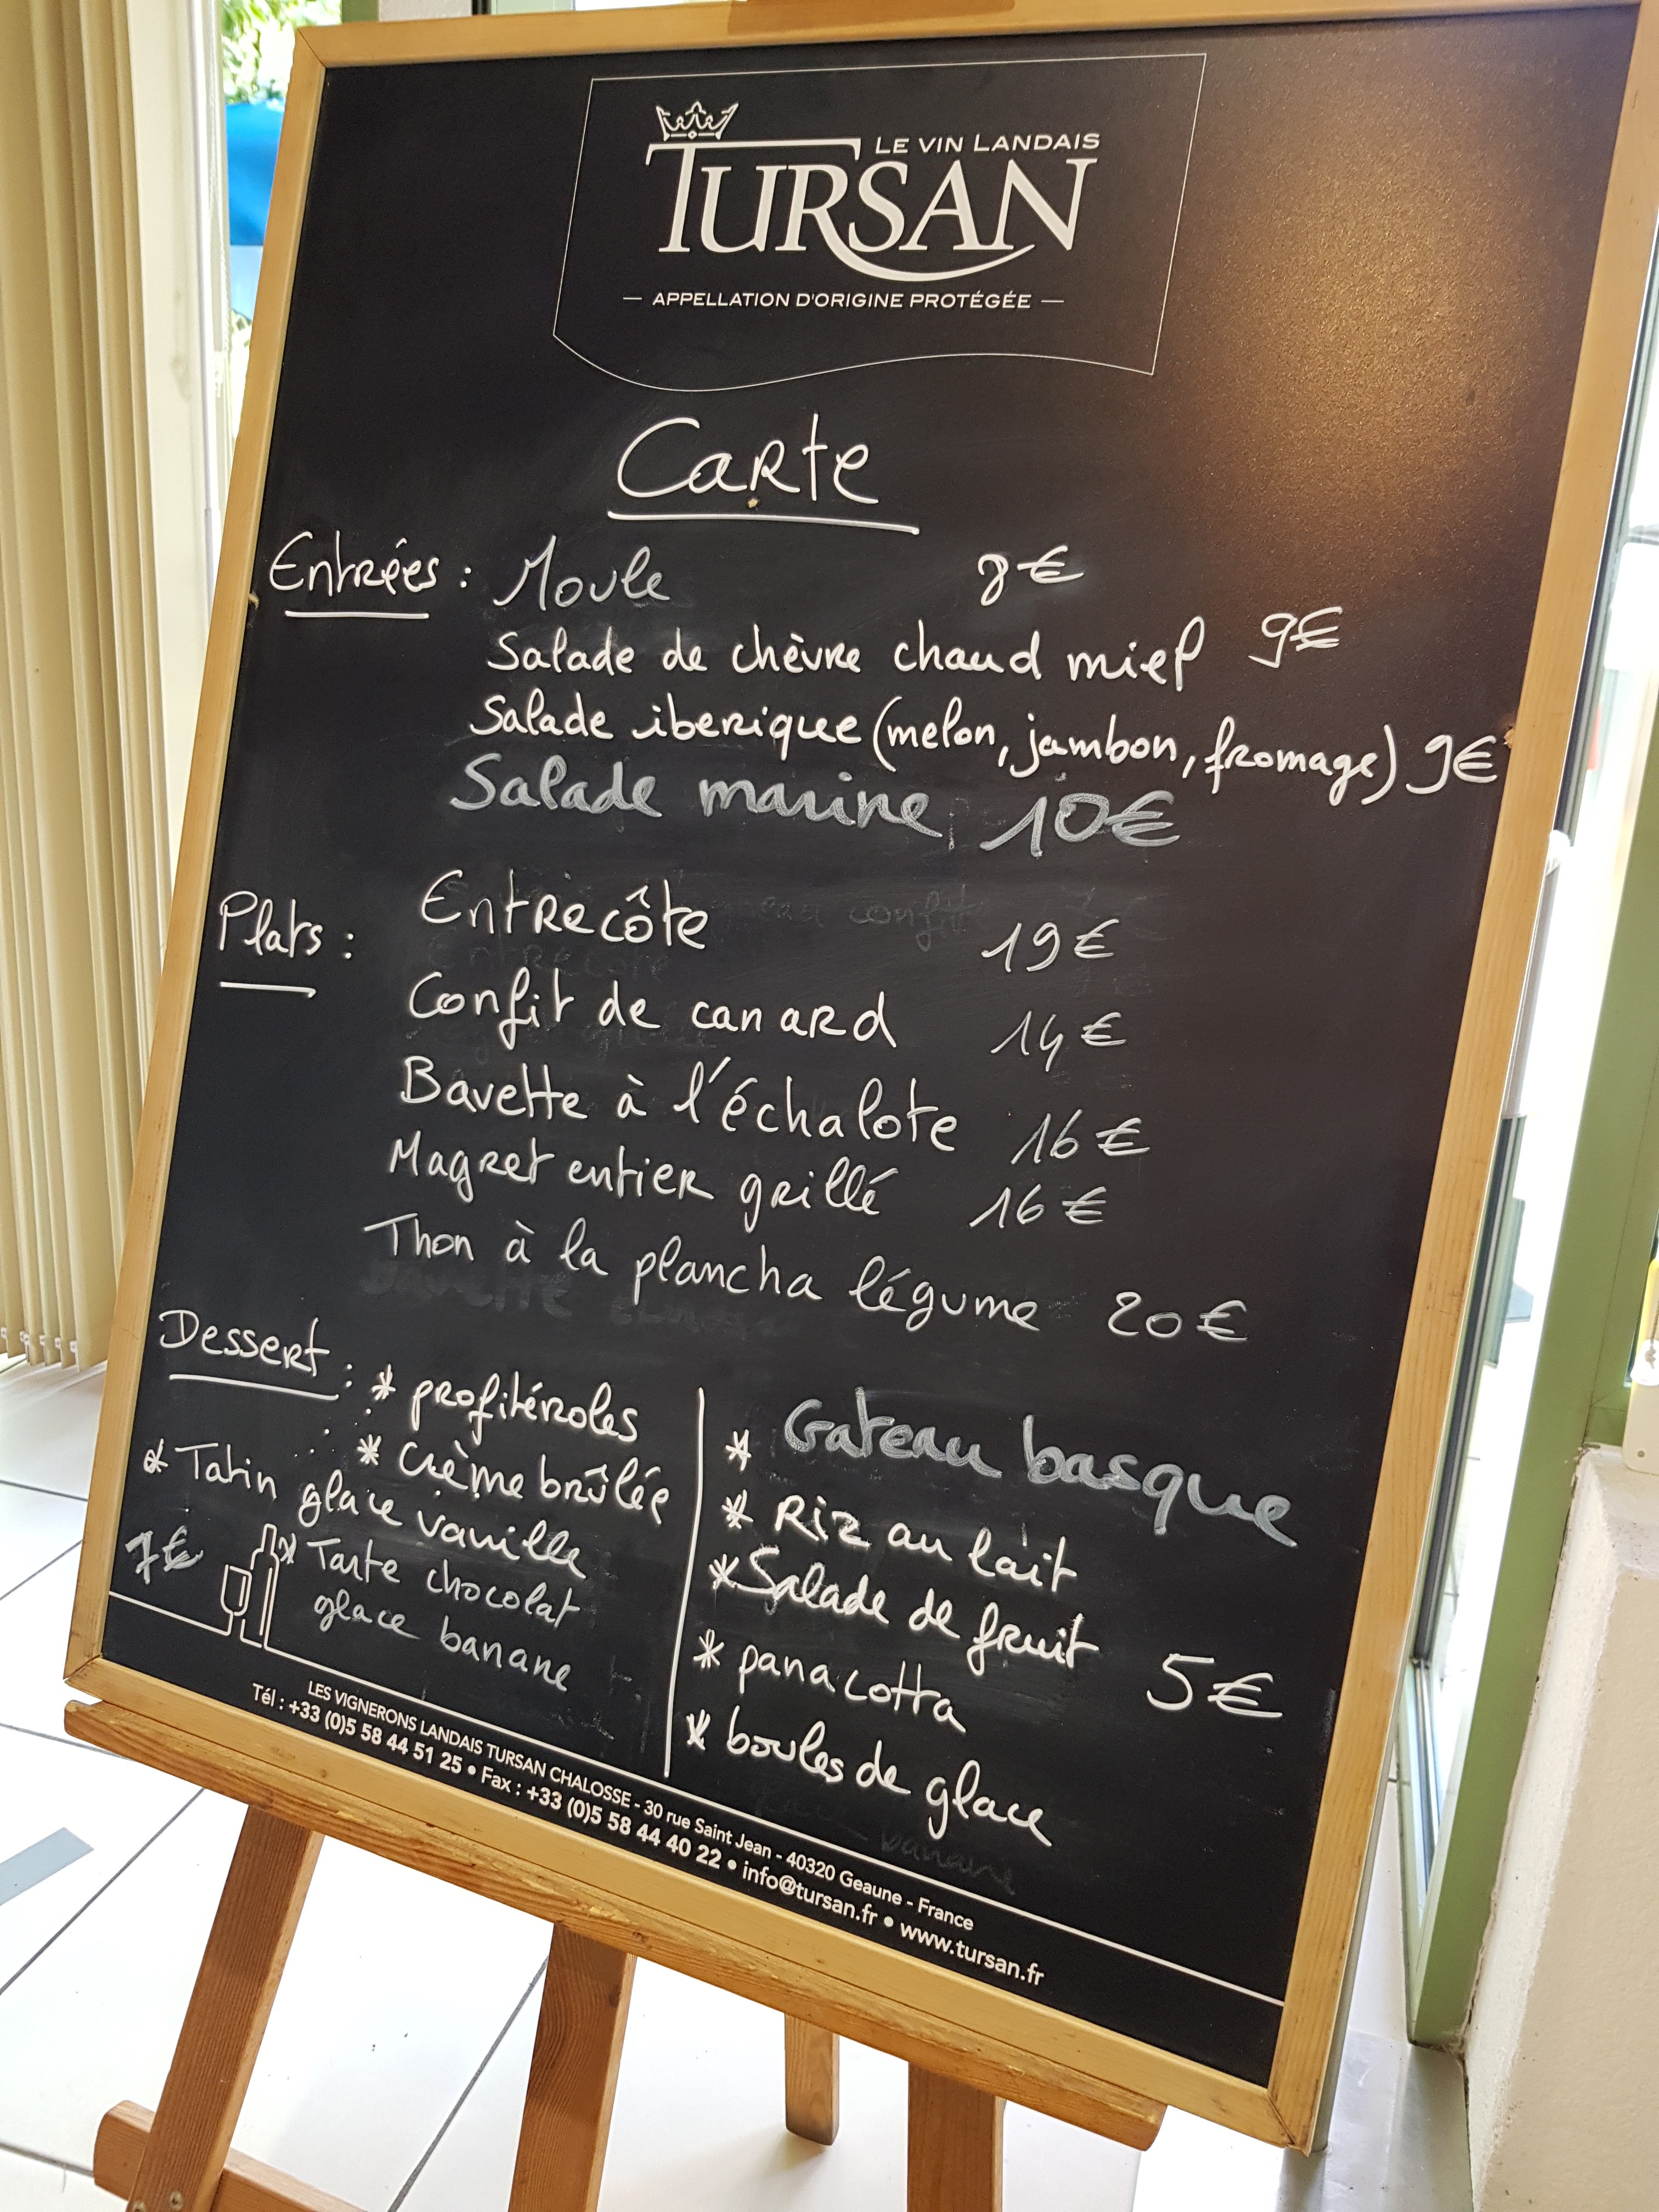 LE VIN LANDAIS
TURSAN
— APPELLATION D'ORIGINE PROTÉGÉE —
Carte
Entrées : Moule 8€
Salade de chèvre chaud miel 9€
Salade iberique (melon, jambon, fromage) 9€
Salade marine 10€
Plats : Entrecôte 19€
Confit de canard 14€
Bavette à l'échalote 16€
Magret entier grillé 16€
Thon à la plancha légume 20€
Dessert : * profitéroles
* Crème brûlée
* Tatin glace vanille
7€
* Tarte chocolat
glace banane
* Gateau basque
* Riz au lait
* Salade de fruit
5€
* panacotta
* boules de glace
LES VIGNERONS LANDAIS TURSAN CHALOSSE - 30 rue Saint Jean - 40320 Geaune - France
Tél : +33 (0)5 58 44 51 25 • Fax : +33 (0)5 58 44 40 22 • info@tursan.fr • www.tursan.fr